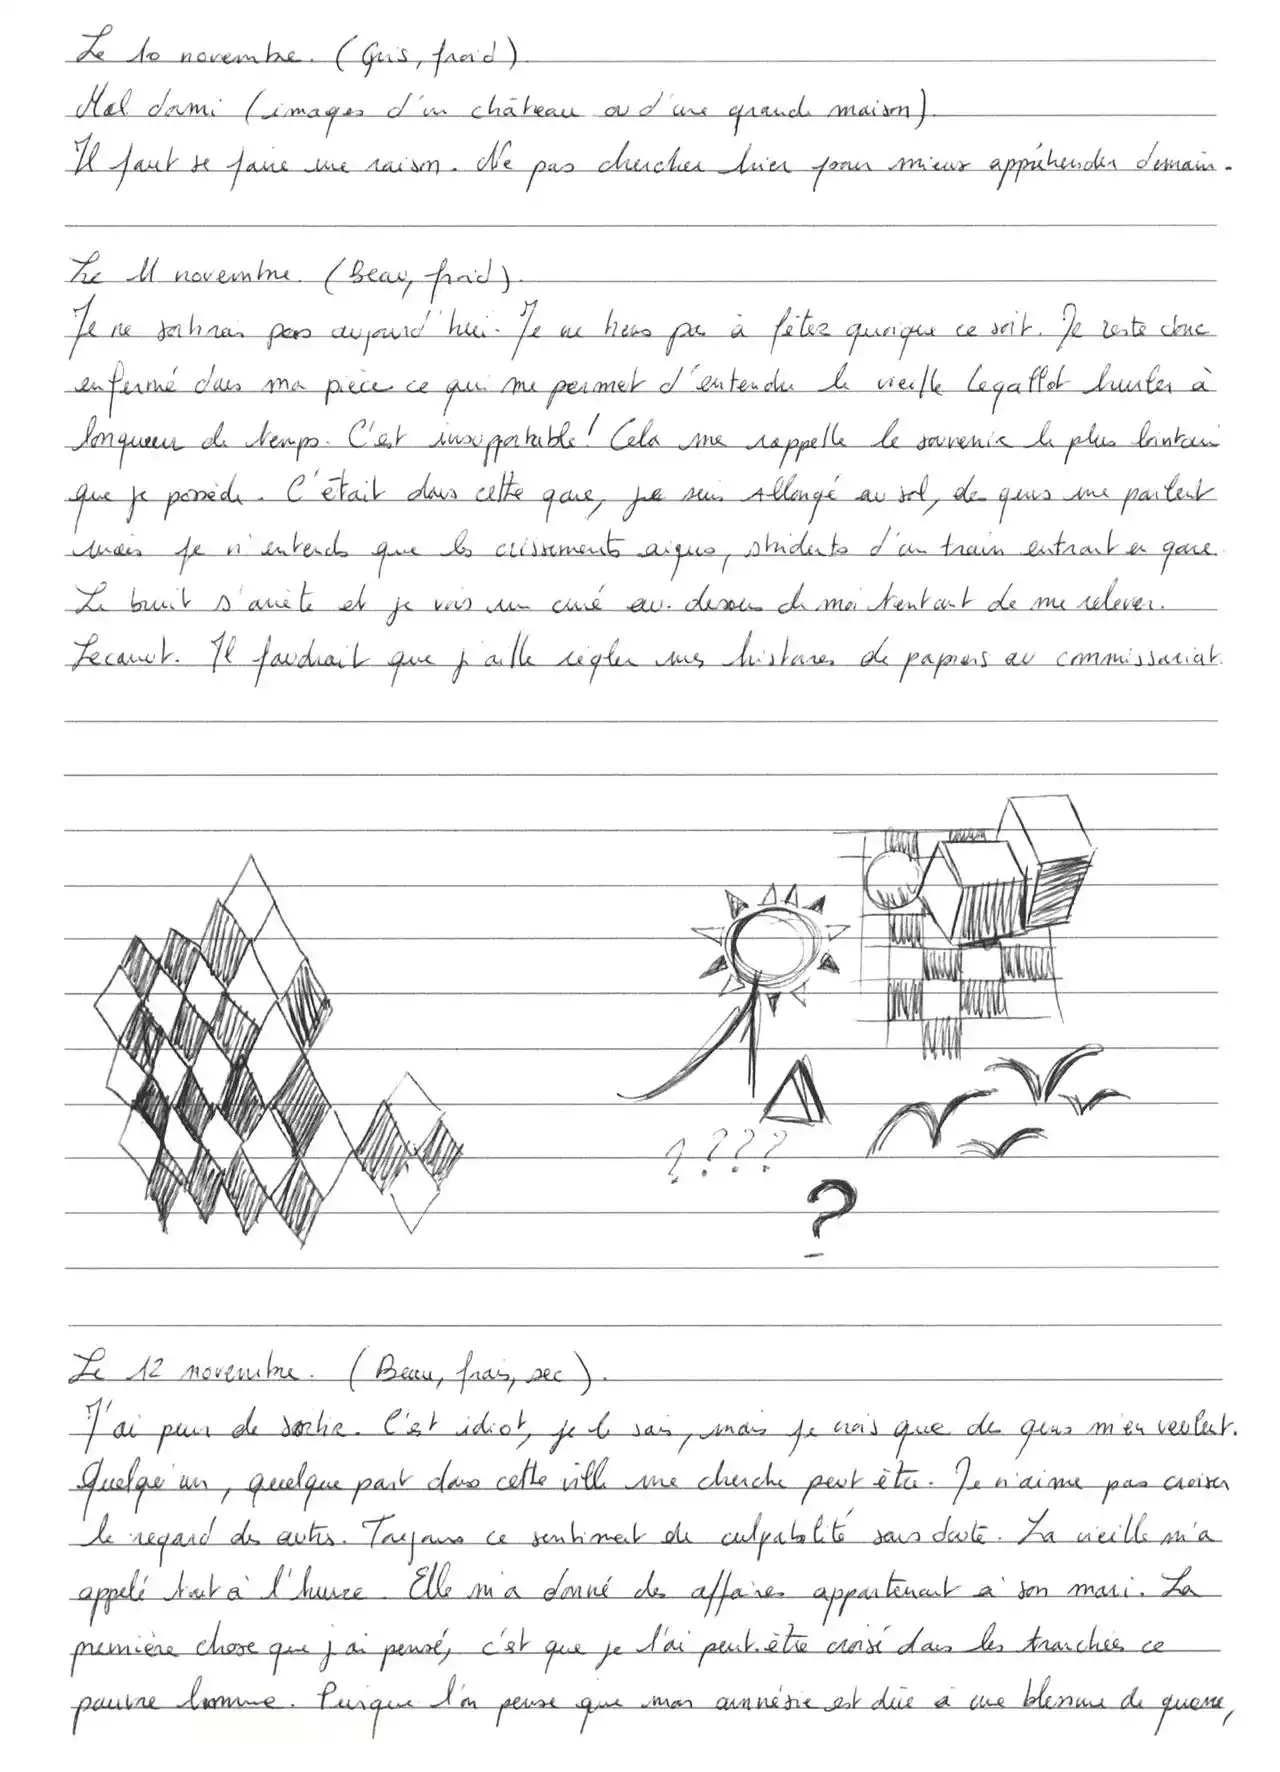 Le 10 novembre. (Gris, froid).
Mal dormi (images d'un château ou d'une grande maison).
Il faut se faire une raison. Ne pas chercher hier pour mieux appréhender demain.
Le 11 novembre. (Beau, froid).
Je ne sortirai pas aujourd'hui. Je ne tiens pas à fêter quoique ce soit. Je reste donc
enfermé dans ma pièce ce qui me permet d'entendre la vieille Legaffot hurler à
longueur de temps. C'est insupportable! Cela me rappelle le souvenir le plus lointain
que je possède. C'était dans cette gare, je suis allongé au sol, des gens me parlent
mais je n'entends que les crissements aigus, stridents d'un train entrant en gare.
Le bruit s'arrête et je vois un curé au-dessus de moi tentant de me relever.
Lecanut. Il faudrait que j'aille régler mes histoires de papiers au commissariat.
? ? ? ?
?
Le 12 novembre. (Beau, frais, sec).
J'ai peur de sortir. C'est idiot, je le sais, mais je crois que des gens m'en veulent.
Quelqu'un, quelque part dans cette ville me cherche peut être. Je n'aime pas croiser
le regard des autres. Toujours ce sentiment de culpabilité sans doute. La vieille m'a
appelé tout à l'heure. Elle m'a donné des affaires appartenant à son mari. La
première chose que j'ai pensé, c'est que je l'ai peut-être croisé dans les tranchées ce
pauvre homme. Puisque l'on pense que mon amnésie est dûe à une blessure de guerre,